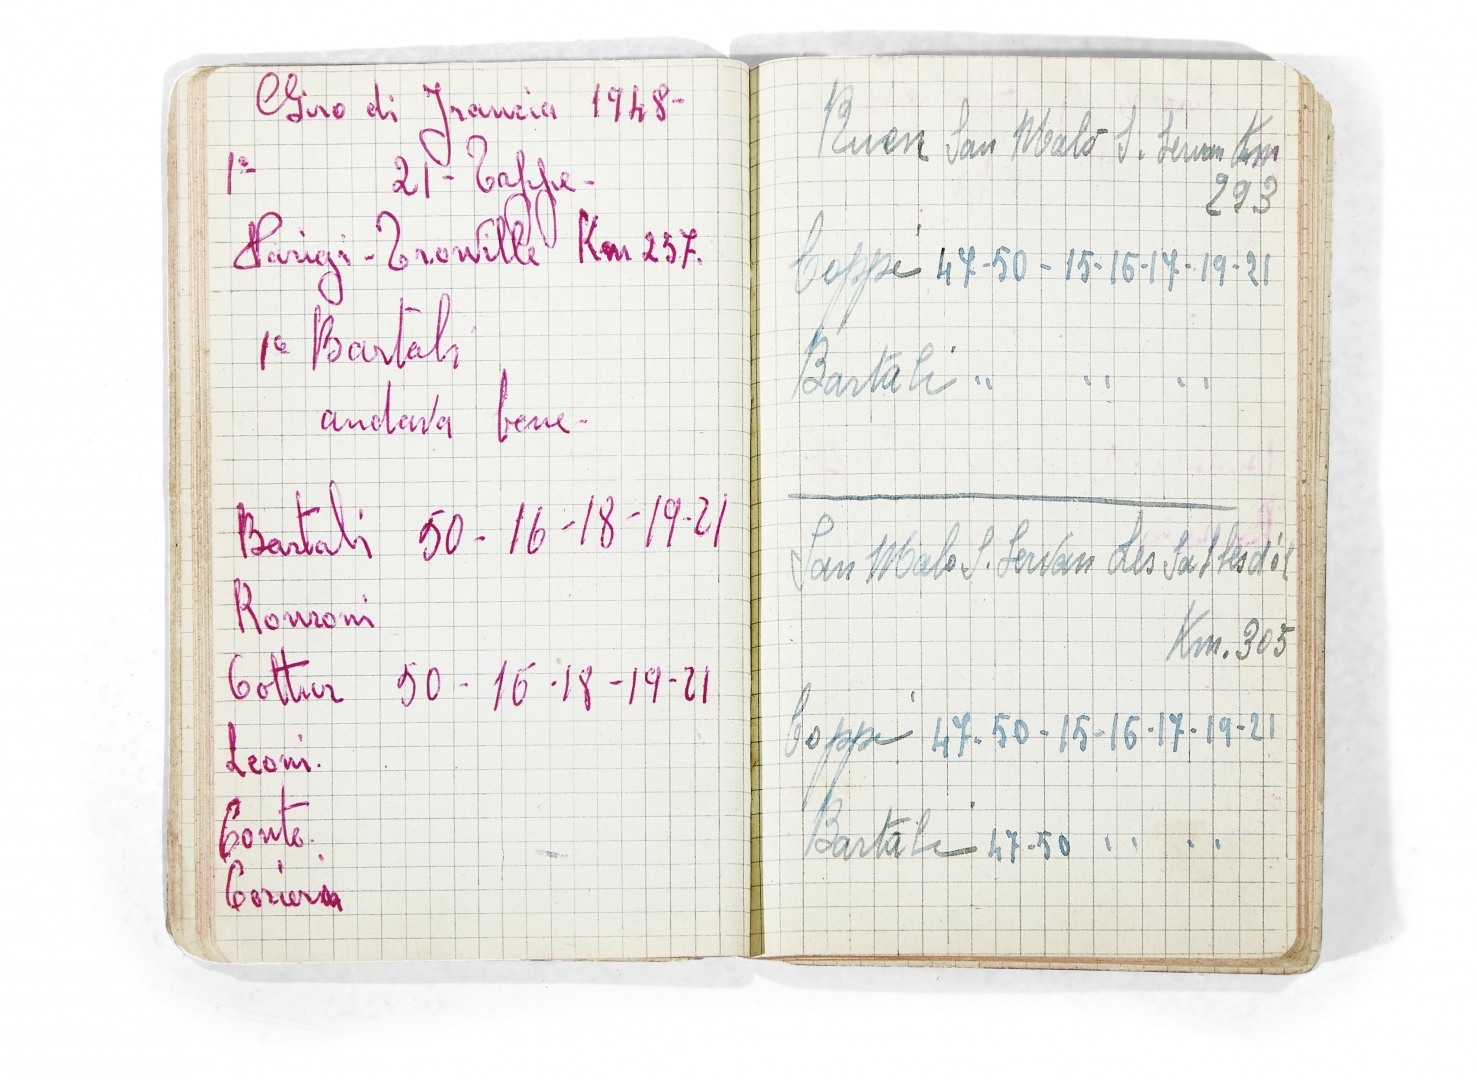 Giro di Francia 1948-
1a 21- Tappe-
Parigi-Trouville Km 237.
1o Bartali
andava bene-
Bartali 50-16-18-19-21
Ronzoni
Cottur 50-16-18-19-21
Leoni.
Conte.
Corieri
Ruen San Malò S. Servan Km
293
Coppi 47-50-15-16-17-19-21
Bartali " " "
San Malo S. Servan Les
Km. 305
Coppi 47-50-15-16-17-19-21
Bartali 47-50 " "